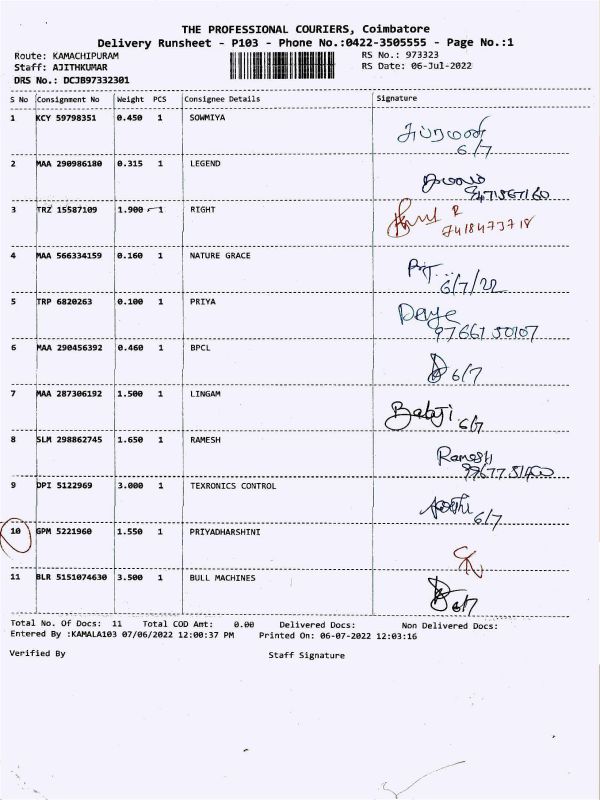 THE PROFESSIONAL COURIERS, Coimbatore
Delivery Runsheet - P103 - Phone No.:0422-3505555 - Page No.:1
Route: KAMACHIPURAM RS No.: 973323
Staff: AJITHKUMAR RS Date: 06-Jul-2022
DRS No.: DCJB97332301
S No Consignment No Weight PCS Consignee Details Signature
1 KCY 59798351 0.450 1 SOWMIYA
6/7
2 MAA 290986180 0.315 1 LEGEND
3 TRZ 15587109 1.900 1 RIGHT
9418473718
4 MAA 566334159 0.160 1 NATURE GRACE
6/7/22
5 TRP 6820263 0.100 1 PRIYA
97661 50107
6 MAA 290456392 0.460 1 BPCL
6/7
7 MAA 287306192 1.500 1 LINGAM
Balaji 6/7
8 SLM 298862745 1.650 1 RAMESH
Ramesh
9 DPI 5122969 3.000 1 TEXRONICS CONTROL
6/7
10 GPM 5221960 1.550 1 PRIYADHARSHINI
11 BLR 5151074630 3.500 1 BULL MACHINES
6/7
Total No. Of Docs: 11 Total COD Amt: 0.00 Delivered Docs: Non Delivered Docs:
Entered By :KAMALA103 07/06/2022 12:00:37 PM Printed On: 06-07-2022 12:03:16
Verified By Staff Signature